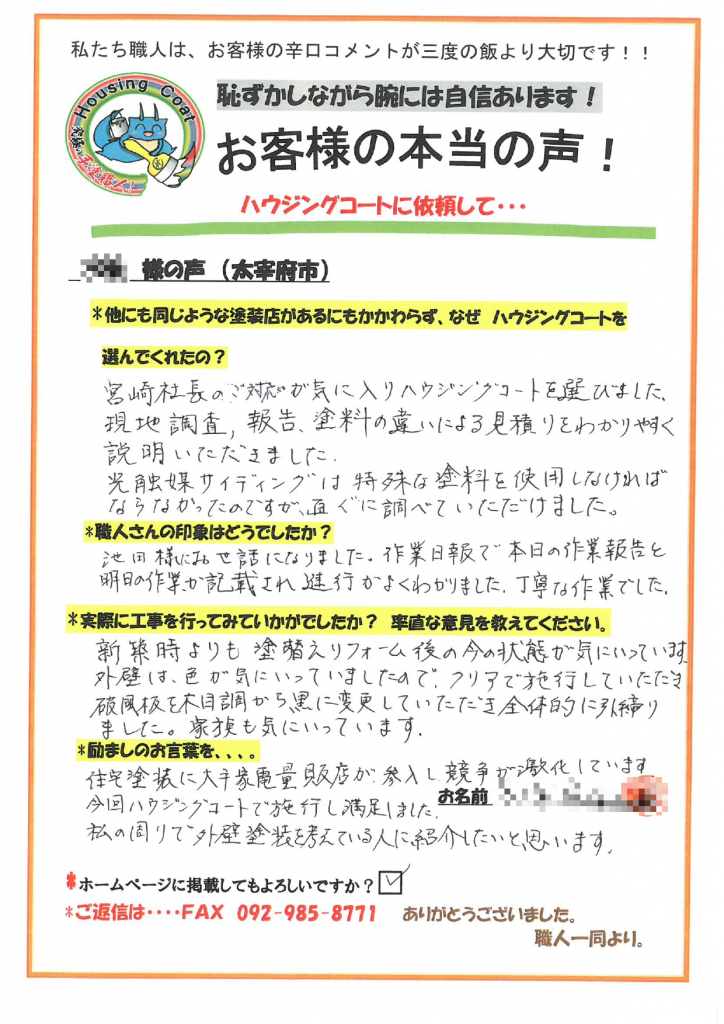 私たち職人は、お客様の辛口コメントが三度の飯より大切です！！
Housing Coat
恥ずかしながら腕には自信あります！
お客様の本当の声！
ハウジングコートに依頼して・・・
様の声 （太宰府市）
*他にも同じような塗装店があるにもかかわらず、なぜ ハウジングコートを
選んでくれたの？
宮崎社長のご対応が気に入りハウジングコートを選びました、
現地調査, 報告、塗料の違いによる見積りをわかりやすく
説明いただきました.
光触媒サイディングは特殊な塗料を使用しなければ
ならなかったのですが、直ぐに調べていただけました。
*職人さんの印象はどうでしたか？
池田様にお世話になりました. 作業日報で本日の作業報告と
明日の作業が記載され進行がよくわかりました. 丁寧な作業でした.
*実際に工事を行ってみていかがでしたか？ 率直な意見を教えてください。
新築時よりも塗替えリフォーム後の今の状態が気にいっています
外壁は、色が気にいっていましたので、クリアで施行していただき
破風板を木目調から黒に変更していただき全体的に引締り
ました。家族も気にいっています.
*励ましのお言葉を、、、。
住宅塗装に大手家電量販店が、参入し競争が激化しています
お名前
今回ハウジングコートで施行し満足しました.
私の周りで外壁塗装を考えている人に紹介したいと思います.
*ホームページに掲載してもよろしいですか？
*ご返信は・・・・FAX 092-985-8771 ありがとうございました。
職人一同より。